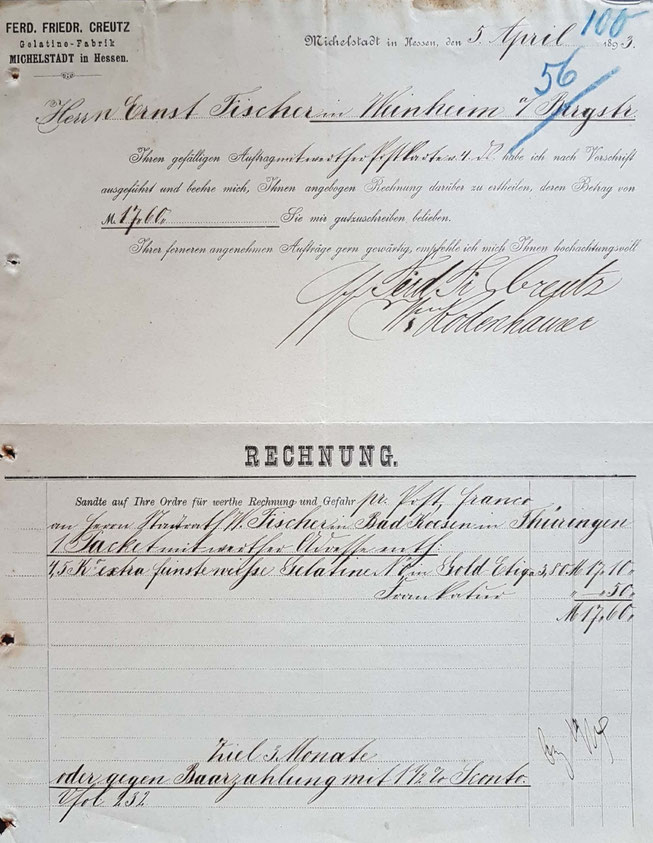 FERD. FRIEDR. CREUTZ
Gelatine-Fabrik
MICHELSTADT in Hessen.
100
Michelstadt in Hessen, den 5. April 1893.
56
Herrn Ernst Fischer in Weinheim a/ Bergstr.
Ihren gefälligen Auftrag mit werther Postkarte v. 4. d. habe ich nach Vorschrift
ausgeführt und beehre mich, Ihnen angebogen Rechnung darüber zu ertheilen, deren Betrag von
M. 17,60. Sie mir gutzuschreiben belieben.
Ihrer ferneren angenehmen Aufträge gern gewärtig, empfehle ich mich Ihnen hochachtungsvoll
Ferd. Fr. Creutz
Rodenhauser
RECHNUNG.
Sandte auf Ihre Ordre für werthe Rechnung und Gefahr pr. Post, franco
an Herrn Stadtrath W. Fischer in Bad Koesen in Thüringen
1 Packet mit werther Adresse enth:
4,5 Ko extra feinste weisse Gelatine in Gold Etiq. 3,80 M 17,10
Frankatur „ 50
M 17,60
Ziel 3 Monate
oder gegen Baarzahlung mit 1 1/2 % Sconto.
Vfol 232